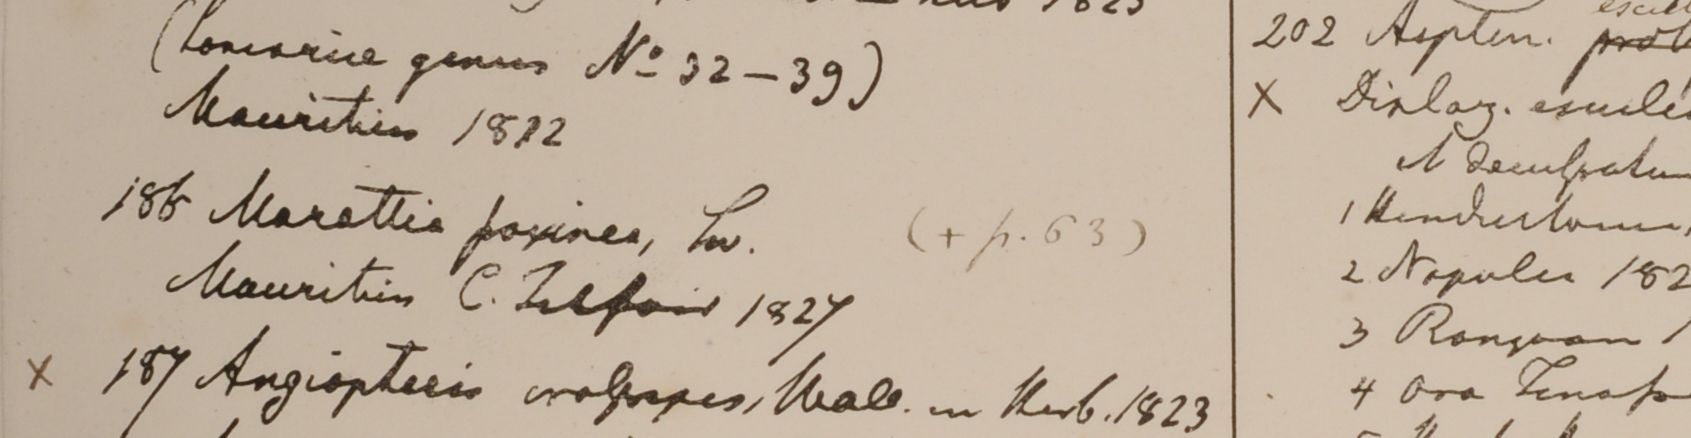 1823
(Lomariae genus No 32 – 39)
Mauritius 1822
186 Marattia faxinea, Sw. (+ p. 63)
Mauritius C. Telfair 1827
X 187 Angiopteris crassipes, Wall. in Herb. 1823
202 Asplen.
X Diplaz. escule
1 Hindustan
2 Napalia 182
3 Rangoon 1
4 Ora Tenas